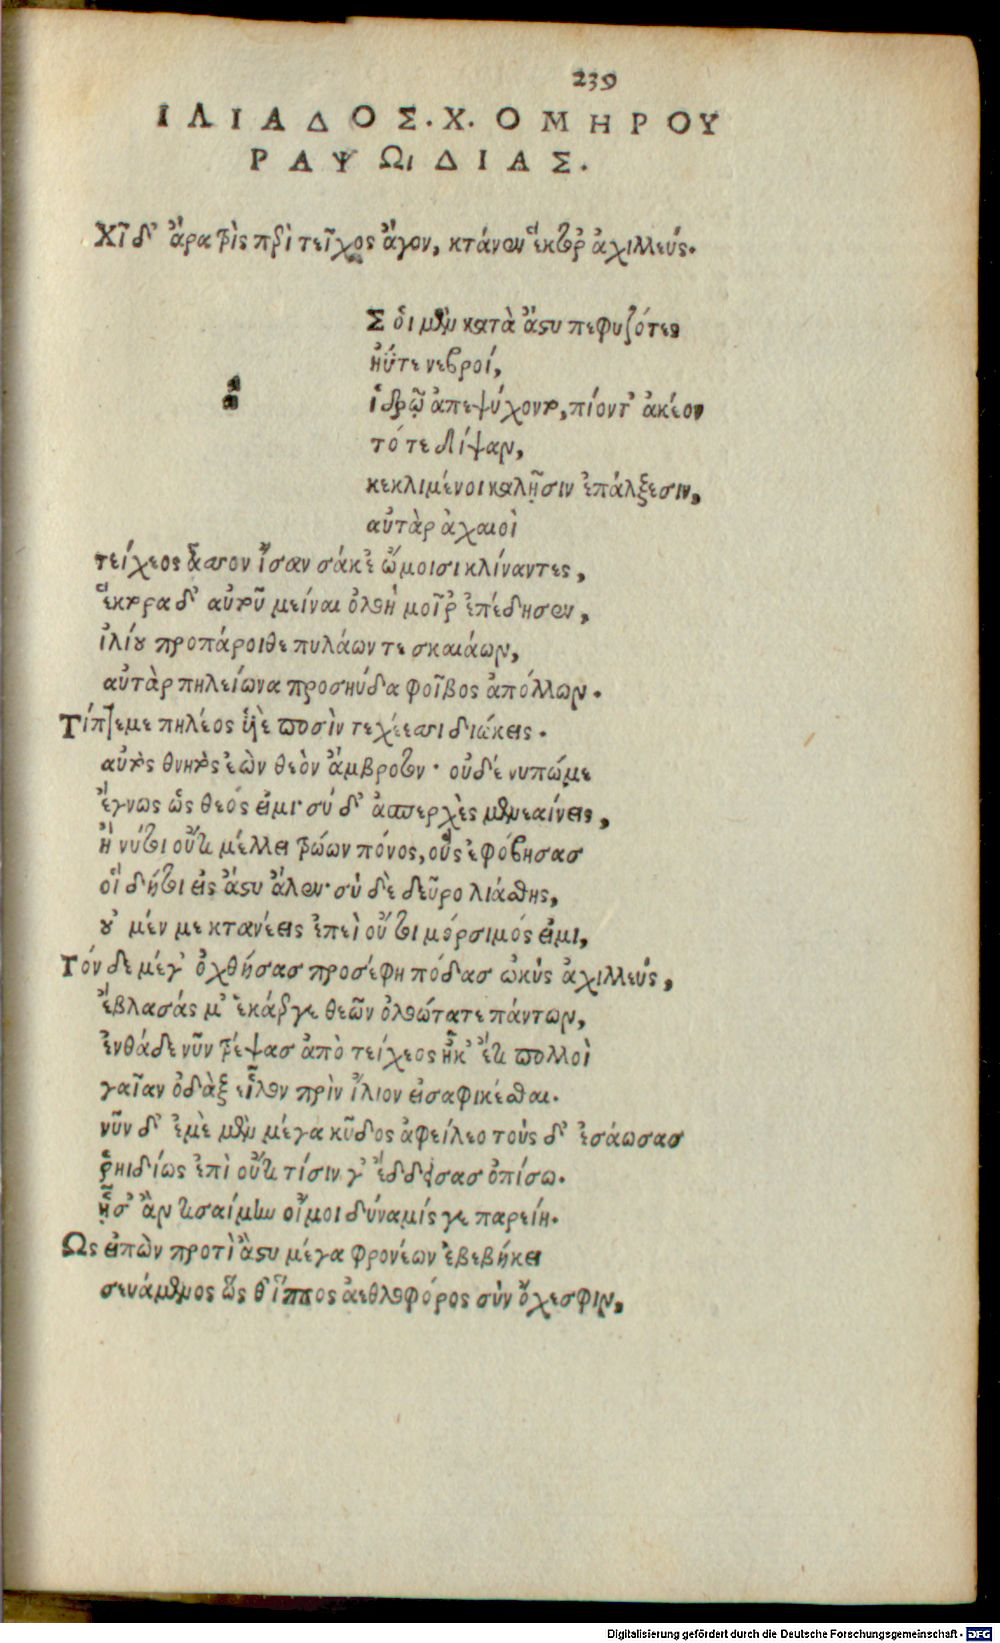 239
ΙΛΙΑΔΟΣ. Χ. ΟΜΗΡΟΥ
ΡΑΨΩΙΔΙΑΣ.
Χῖ δ' ἄρα τρὶς περὶ τεῖχος ἄγον, κτάνεν ἕκτορ ἀχιλλεύς.
ὣ
Σ ὁι μὲν κατὰ ἄστυ πεφυζότες
ἠΰτε νεβροί,
ἱδρῶ ἀπεψύχοντο, πίοντ' ἀκέοντό τε δίψαν,
κεκλιμένοι καλῇσιν ἐπάλξεσιν,
αὐτὰρ ἀχαιοὶ
τείχεος ἆσσον ἴσαν σάκε' ὤμοισι κλίναντες,
ἕκτορα δ' αὐτοῦ μεῖναι ὀλοὴ μοῖρ' ἐπέδησεν,
ἰλίου προπάροιθε πυλάων τε σκαιάων,
αὐτὰρ πηλείωνα προσηύδα φοῖβος ἀπόλλων.
Τίπτε με πηλέος ὑὲ ποσὶν ταχέεσσι διώκεις.
αὐτὸς θνητὸς ἐὼν θεὸν ἄμβροτον· οὐδέ νυ πώ με
ἔγνως ὡς θεός εἰμι· σύ δ' ἀσπερχὲς μενεαίνεις,
ἦ νύ τοι οὔτι μέλλει τρώων πόνος, οὓς ἐφόβησας
οἳ δή τοι εἰς ἄστυ ἄλεν· σὺ δὲ δεῦρο λιάσθης,
οὐ μέν με κτανέεις ἐπεὶ οὔ τοι μόρσιμός εἰμι,
Τόν δε μέγ' ὀχθήσας προσέφη πόδας ὠκὺς ἀχιλλεύς,
ἔβλαψάς μ' ἑκάεργε θεῶν ὀλοώτατε πάντων,
ἐνθάδε νῦν τρέψας ἀπὸ τείχεος ἦ κ' ἔτι πολλοὶ
γαῖαν ὀδὰξ εἷλον πρὶν ἴλιον εἰσαφικέσθαι.
νῦν δ' ἐμὲ μὲν μέγα κῦδος ἀφείλεο τοὺς δ' ἐσάωσας
ῥηιδίως ἐπὶ οὔτι τίσιν γ' ἔδδεισας ὀπίσω.
ἦ σ' ἂν τισαίμην εἴ μοι δύναμίς γε παρείη.
Ὣς εἰπὼν προτὶ ἄστυ μέγα φρονέων ἐβεβήκει
σευάμενος ὥς θ' ἵππος ἀεθλοφόρος σὺν ὄχεσφιν,
Digitalisierung gefördert durch die Deutsche Forschungsgemeinschaft - DFG